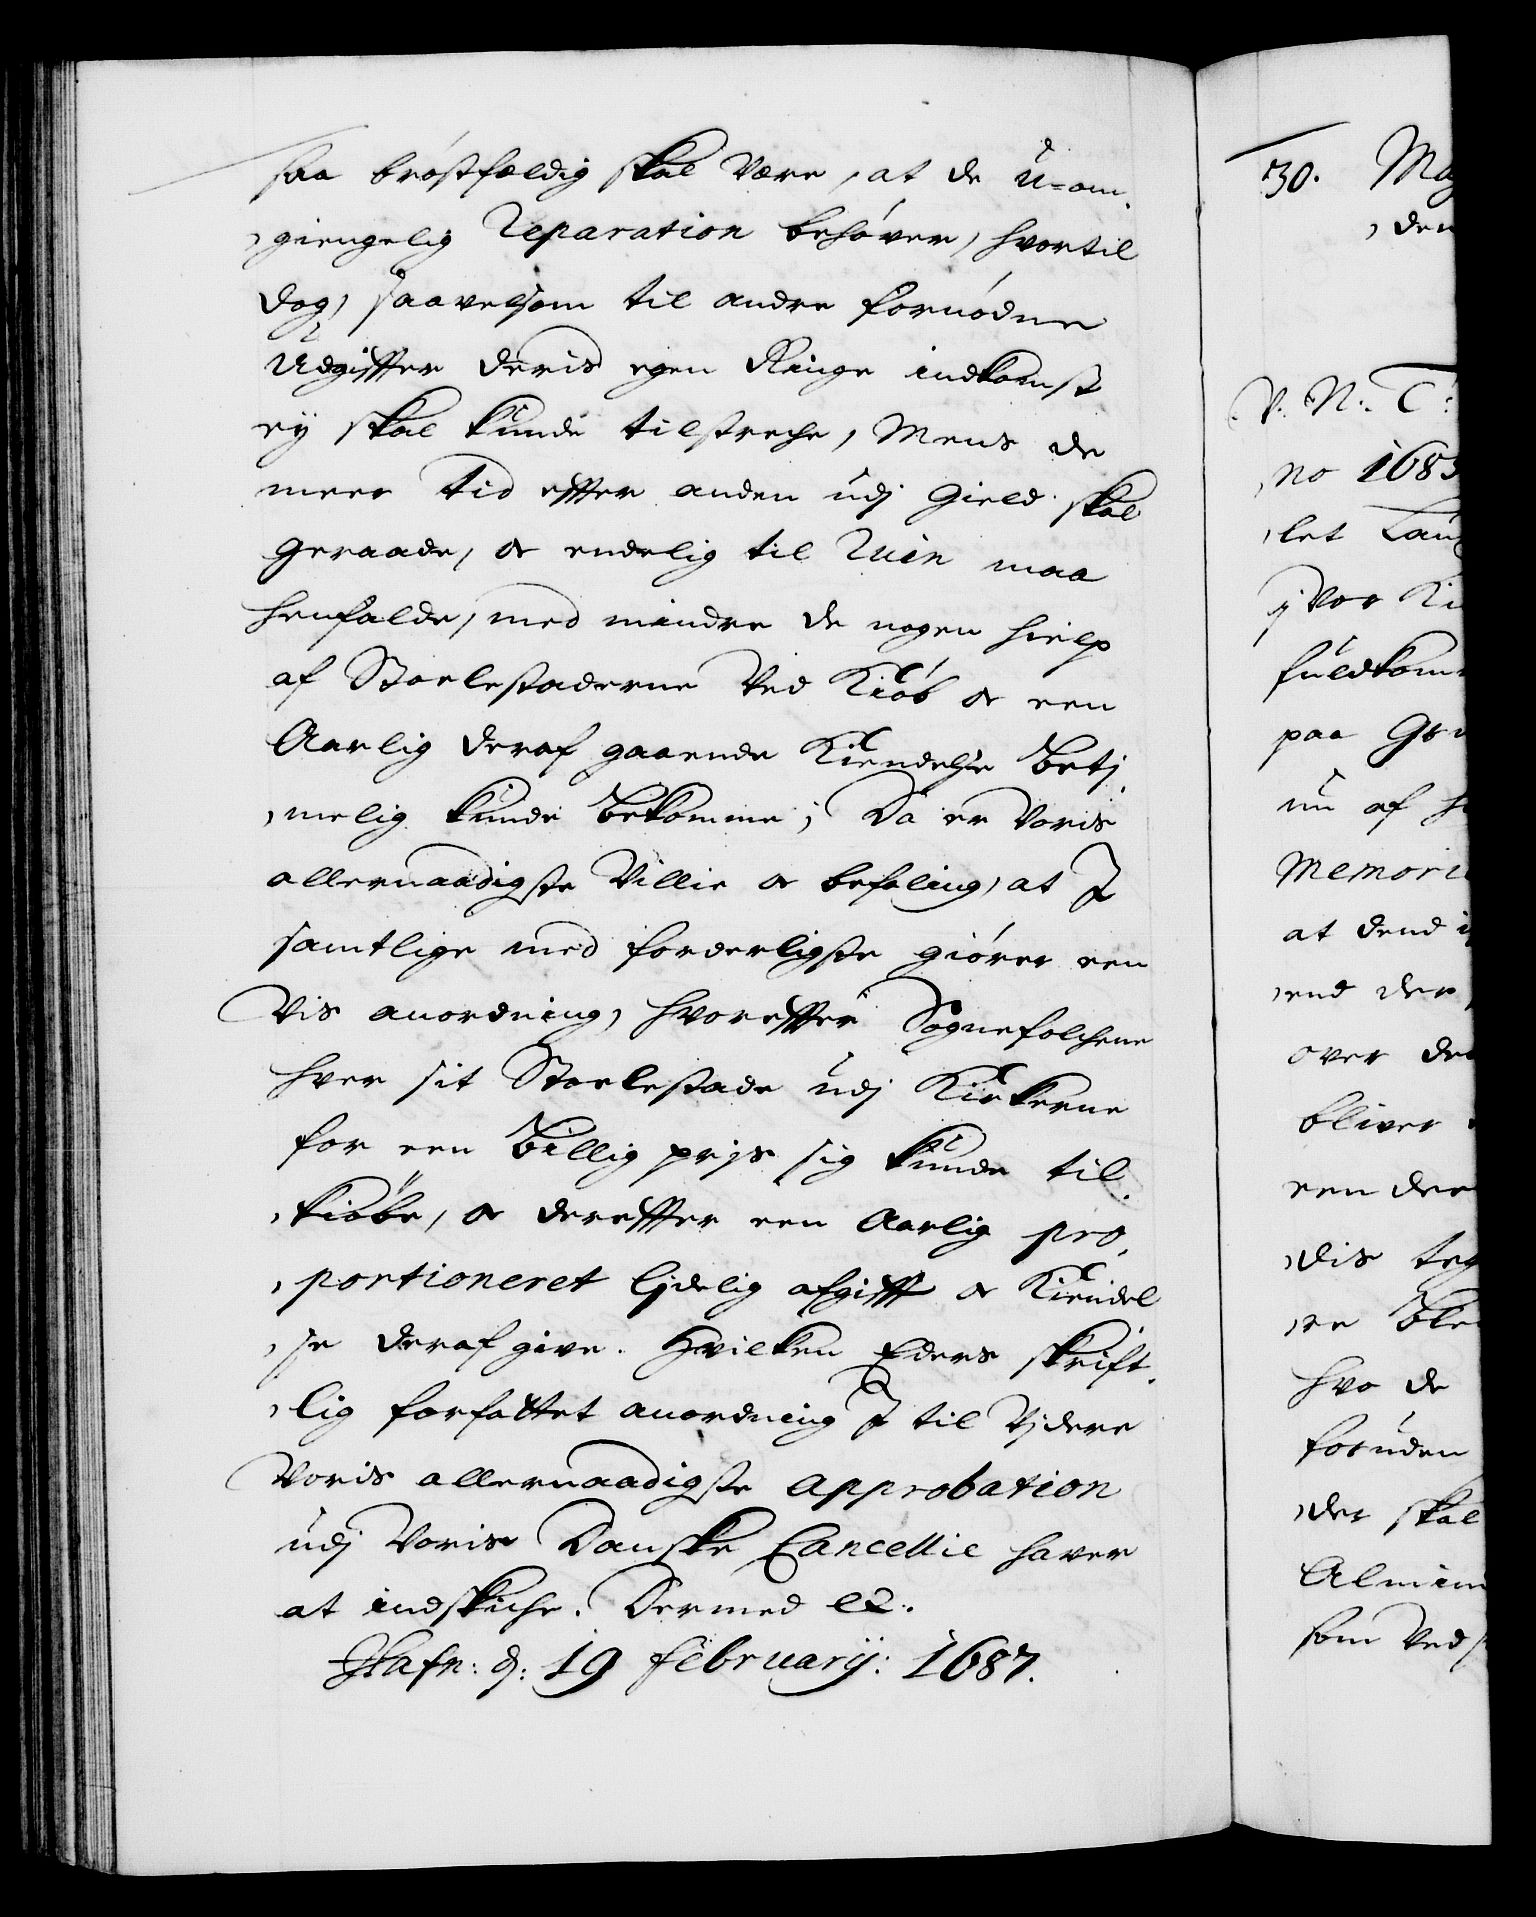 saa brøstfeldig skal være, at de u-om,
,giengelig Reparation behøver, hvortil
dog, saavelsom til andre fornødne
Udgiffter deris egen Ringe indkomst
ey skal kunde tilstreche, Mens de
meer tid effter anden udj Gield skal
Geraade, oc endelig til Ruin maa
henfalde, med mindre de nogen hielp
af Stoelestaderne Ved Kiøb oc een
Aarlig deraf gaaende Kiendelse Betj,
,melig kunde Bekomme; Da er Voris
allernaadigste Villie oc befaling, at I
samtlige med forderligste giører een
Vis anordning, hvoreffter Sognefolchene
hver sit Stoelestade udj Kirkerne
for een Billig prjs sig kunde til,
,kiøbe, oc dereffter een Aarlig pro,
,portioneret ljdelig afgifft oc Kiendel
,se deraf give. Hvilken Eders skrift,
,lig forfattet anordning I til Vjdere
Voris allernaadigste Approbation
udj Voris Danske Cancellie haver
at indskiche. Dermed ec.
Hafn: d: 19 februarij: 1687.
30. Ma
, den
V. N. T:
,no 168
,let Lau
fuldkom
paa
nu af
Memori
at dend
,end der
over de
bliver
een dee
,dis teg
,re Ble
hvo de
foruden
,der skal
Almin
som Ved